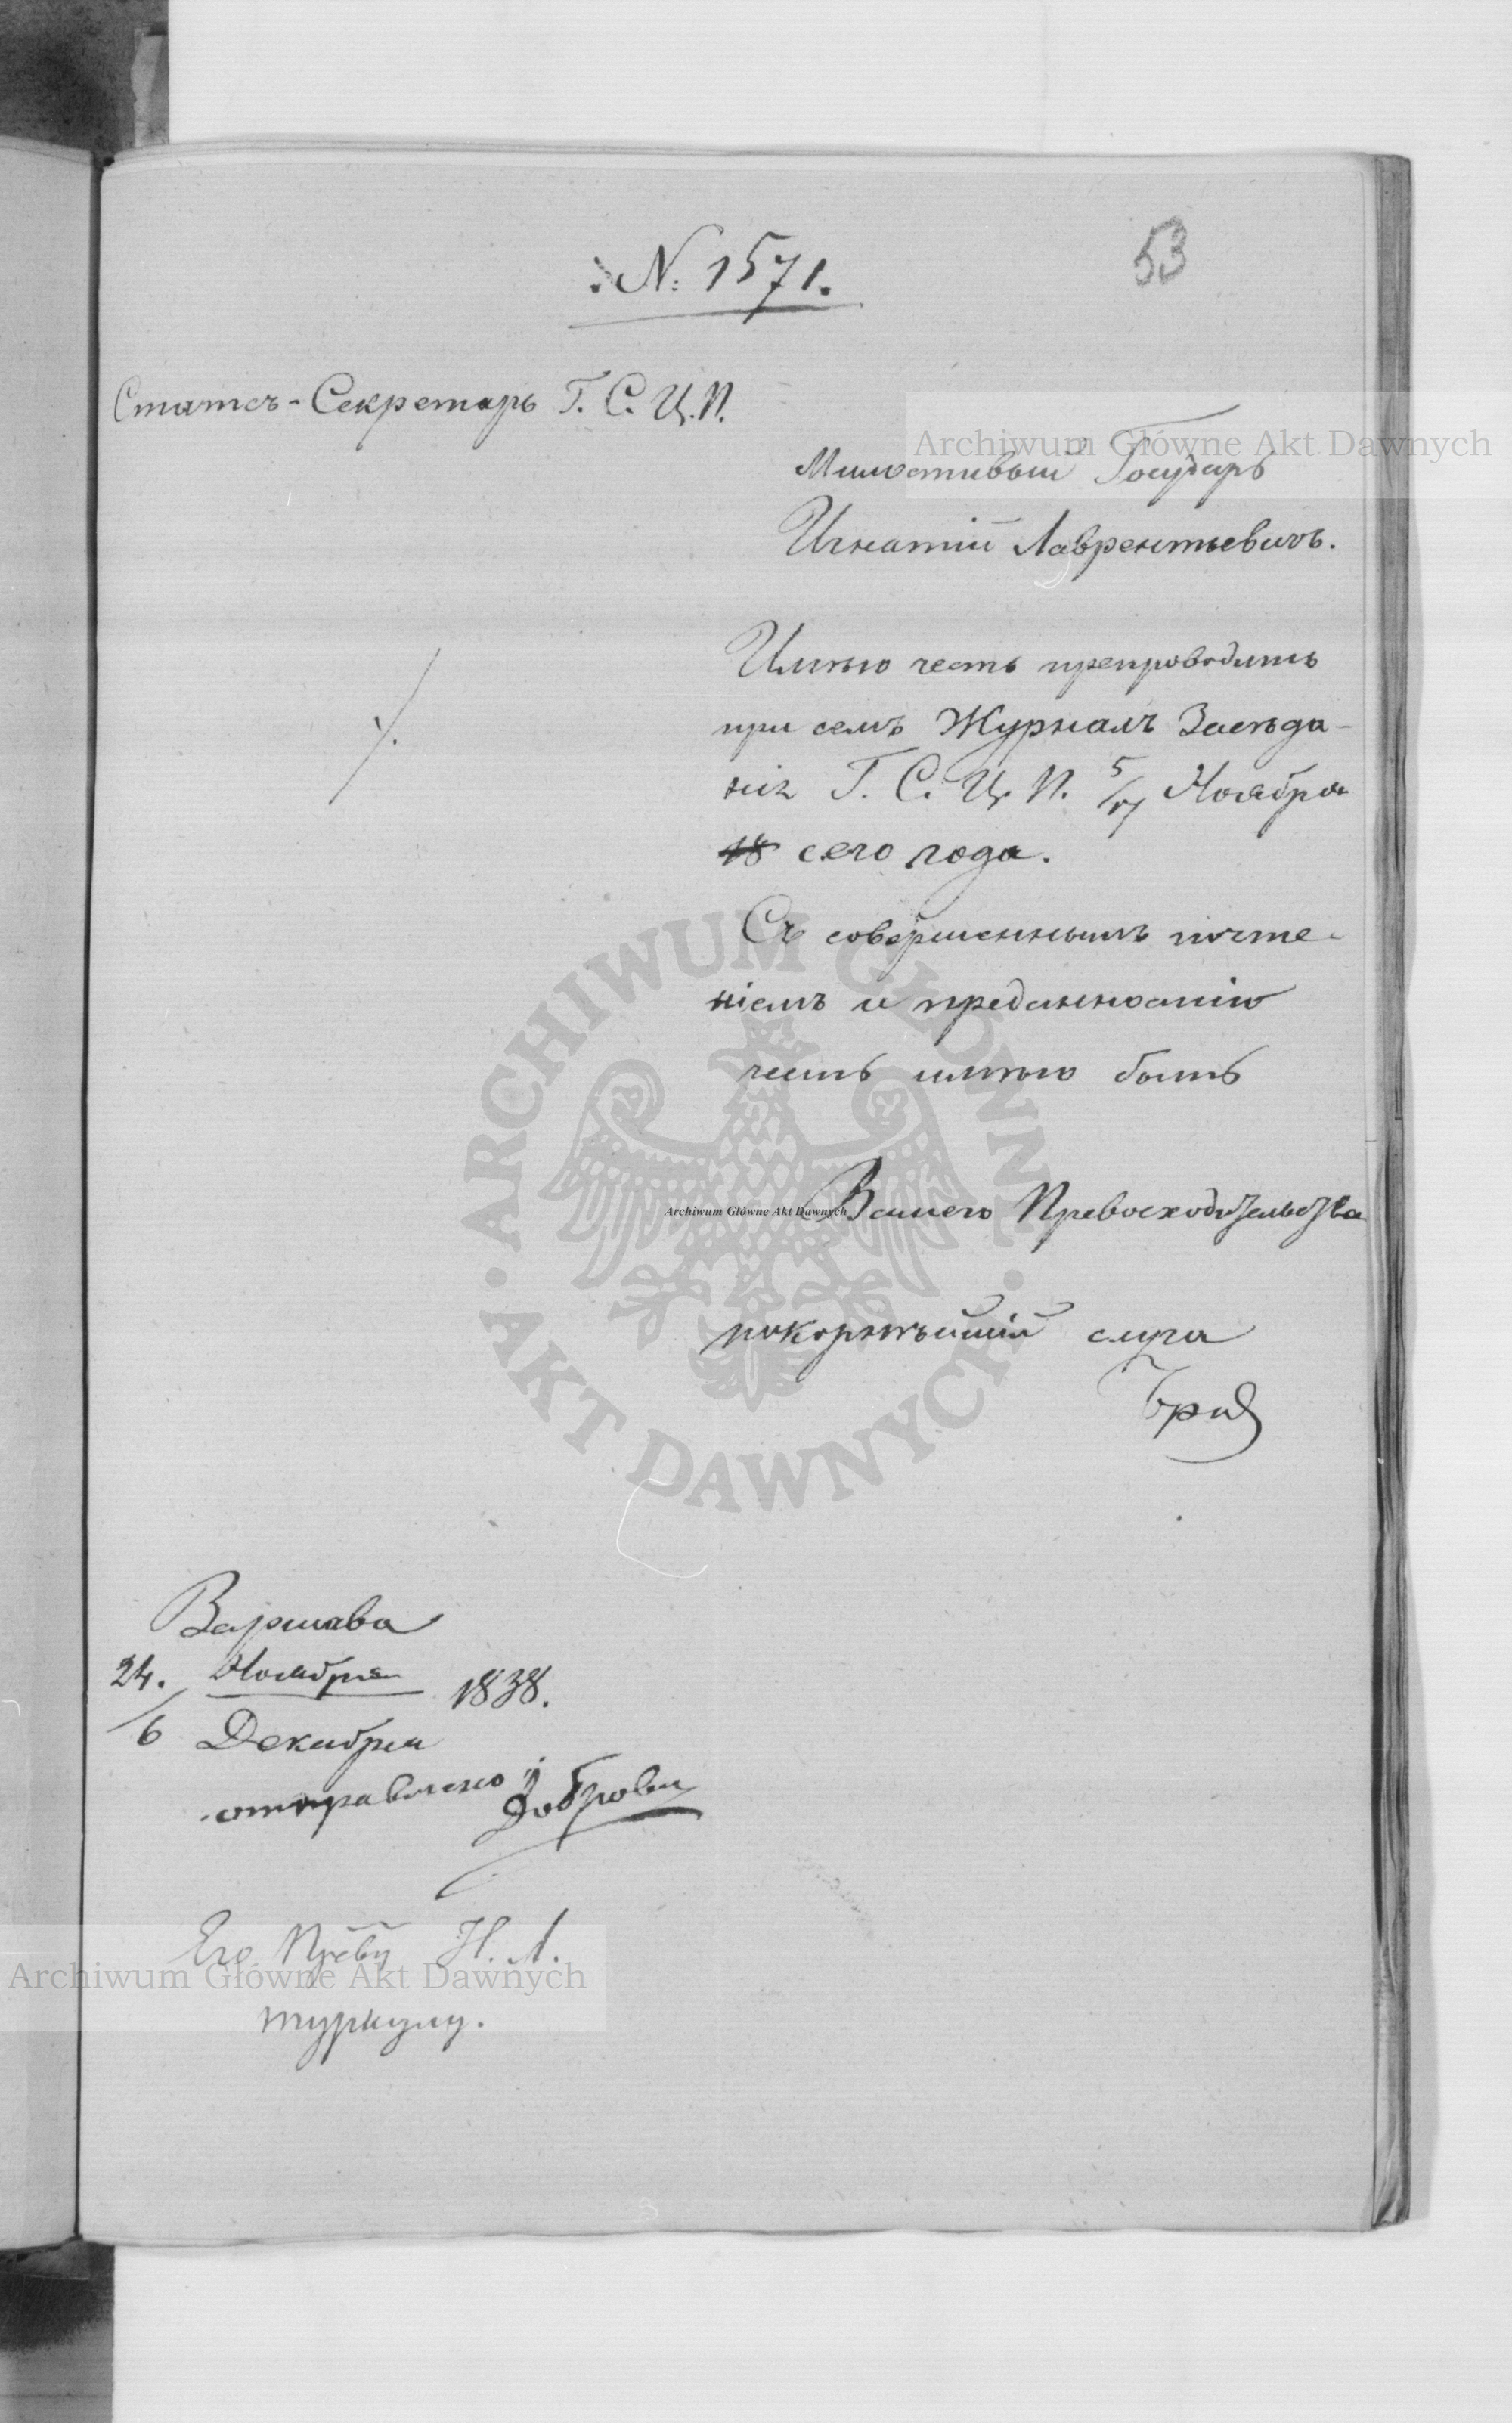 53
N: 1571.
Статсъ-Секретарь Г. С. Ц. П.
Archiwum Główne Akt Dawnych
Милостивый Государь
Игнатій Лаврентьевичъ.
Имѣю честь препроводить
при семъ Журналъ Засѣда-
нія Г. С. Ц. П. 5/17 Ноября
18 сего года.
Съ совершеннымъ почте-
ніемъ и преданностію
честь имѣю быть
Вашего Превосходительства
Archiwum Główne Akt Dawnych
покорнѣйшій слуга
ARCHIWUM GŁÓWNE
AKT DAWNYCH
Варшава
24. Ноября
1838.
/6 Декабря
отправлено
Его Прев̃у И. Л.
Archiwum Główne Akt Dawnych
Туркулу.